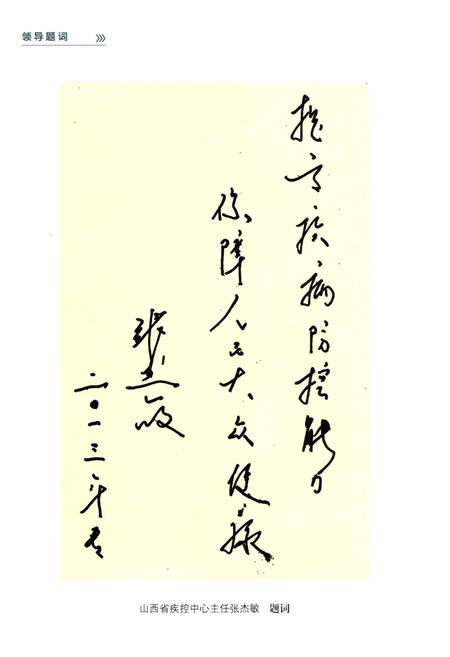 领导题词
提高疾病防控能力
保障人民大众健康
张杰敏
二〇一三年春
山西省疾控中心主任张杰敏 题词